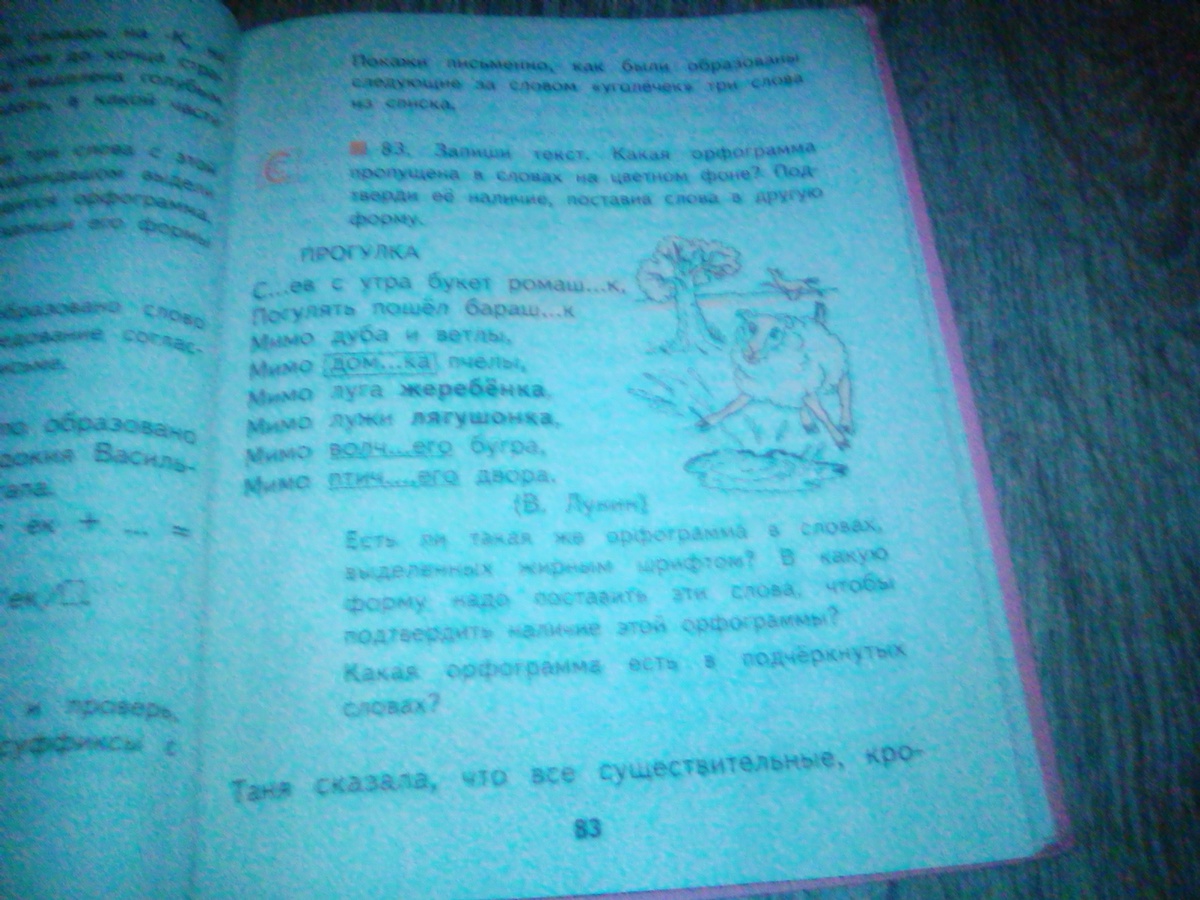 словарь на -К
до конца стра-
выделена голубым
в какой части
три слова с этой
карандашом выдели
орфограмма,
его формы
образовано слово
соглас-
образовано
Василь-
ек + ... =
ек/
и проверь,
суффиксы с
Покажи письменно, как были образованы
следующие за словом «уголёчек» три слова
из списка.
83. Запиши текст. Какая орфограмма
пропущена в словах на цветном фоне? Под-
тверди её наличие, поставив слова в другую
форму.
ПРОГУЛКА
С...ев с утра букет ромаш...к,
Погулять пошёл бараш...к
Мимо дуба и ветлы,
Мимо дом...ка пчелы,
Мимо луга жеребёнка,
Мимо лужи лягушонка,
Мимо волч...его бугра,
Мимо птич...его двора.
(В. Лунин)
Есть ли такая же орфограмма в словах,
выделенных жирным шрифтом? В какую
форму надо поставить эти слова, чтобы
подтвердить наличие этой орфограммы?
Какая орфограмма есть в подчёркнутых
словах?
Таня сказала, что все существительные, кро-
83